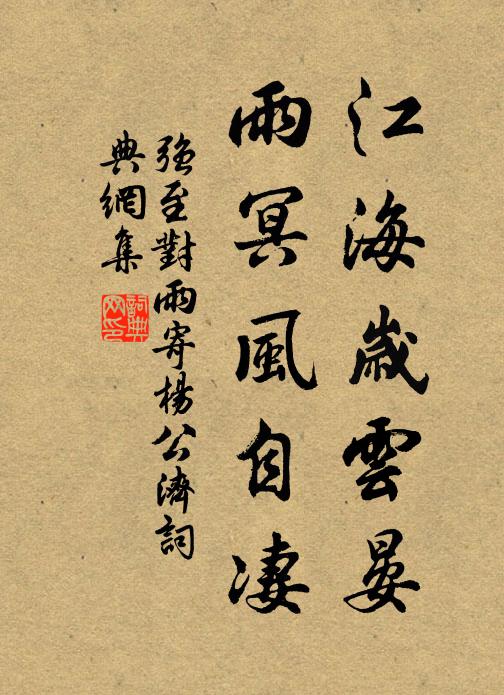 江海歲雲晏
雨冥風自淒
強至對雨寄楊公濟詞
典網集
詞典
网印